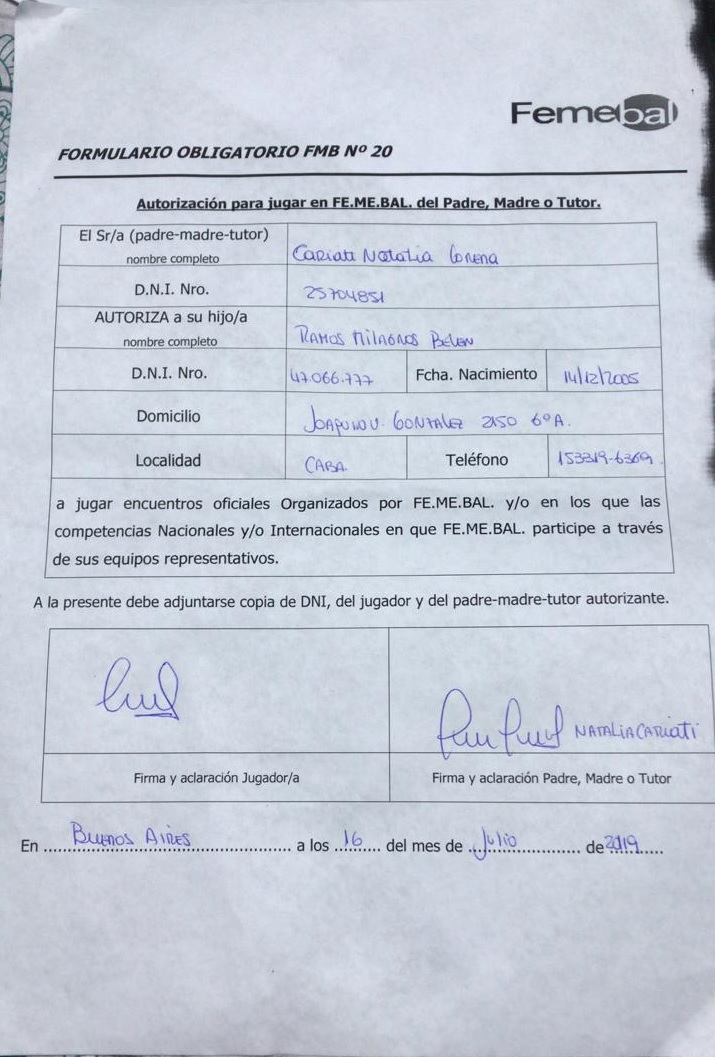 Femebal
FORMULARIO OBLIGATORIO FMB Nº 20
Autorización para jugar en FE.ME.BAL. del Padre, Madre o Tutor.
El Sr/a (padre-madre-tutor)
nombre completo
Cariati Natalia Lorena
D.N.I. Nro.
25704851
AUTORIZA a su hijo/a
nombre completo
Ramos Milagros Belen
D.N.I. Nro. 47.066.777 Fcha. Nacimiento 14/12/2005
Domicilio Joaquin V. Gonzalez 2150 6º A.
Localidad CABA. Teléfono 153319-6369.
a jugar encuentros oficiales Organizados por FE.ME.BAL. y/o en los que las
competencias Nacionales y/o Internacionales en que FE.ME.BAL. participe a través
de sus equipos representativos.
A la presente debe adjuntarse copia de DNI, del jugador y del padre-madre-tutor autorizante.
NATALIA CARIATI
Firma y aclaración Jugador/a Firma y aclaración Padre, Madre o Tutor
En Buenos Aires a los 16 del mes de Julio de 2019